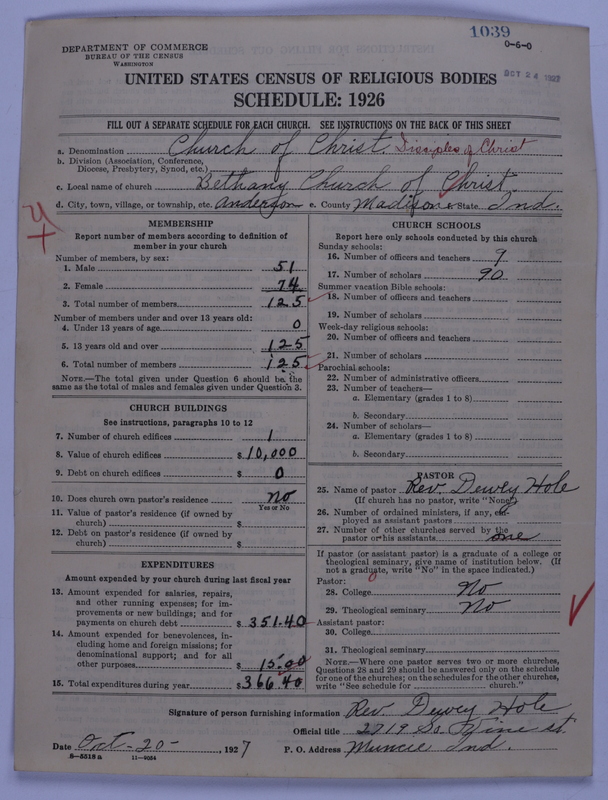 1039
DEPARTMENT OF COMMERCE
BUREAU OF THE CENSUS
WASHINGTON
0-6-0
OCT 24 1927
UNITED STATES CENSUS OF RELIGIOUS BODIES
SCHEDULE: 1926
FILL OUT A SEPARATE SCHEDULE FOR EACH CHURCH. SEE INSTRUCTIONS ON THE BACK OF THIS SHEET
a. Denomination Church of Christ Disciples of Christ
b. Division (Association, Conference, Diocese, Presbytery, Synod, etc.)
c. Local name of church Bethany Church of Christ
d. City, town, village, or township, etc. Anderson e. County Madison & State Ind.
MEMBERSHIP
Report number of members according to definition of
member in your church
Number of members, by sex:
1. Male 51
2. Female 74
3. Total number of members 125
Number of members under and over 13 years old:
4. Under 13 years of age 0
5. 13 years old and over 125
6. Total number of members 125
NOTE.—The total given under Question 6 should be the
same as the total of males and females given under Question 3.
CHURCH BUILDINGS
See instructions, paragraphs 10 to 12
7. Number of church edifices 1
8. Value of church edifices $ 10,000
9. Debt on church edifices $ 0
10. Does church own pastor's residence no
Yes or No
11. Value of pastor's residence (if owned by
church) $
12. Debt on pastor's residence (if owned by
church) $
EXPENDITURES
Amount expended by your church during last fiscal year
13. Amount expended for salaries, repairs,
and other running expenses; for im-
provements or new buildings; and for
payments on church debt $ 351.40
14. Amount expended for benevolences, in-
cluding home and foreign missions; for
denominational support; and for all
other purposes $ 15.00
15. Total expenditures during year $ 366.40
CHURCH SCHOOLS
Report here only schools conducted by this church
Sunday schools:
16. Number of officers and teachers 9
17. Number of scholars 90
Summer vacation Bible schools:
18. Number of officers and teachers
19. Number of scholars
Week-day religious schools:
20. Number of officers and teachers
21. Number of scholars
Parochial schools:
22. Number of administrative officers
23. Number of teachers—
a. Elementary (grades 1 to 8)
b. Secondary
24. Number of scholars—
a. Elementary (grades 1 to 8)
b. Secondary
PASTOR
25. Name of pastor Rev. Dewey Hole
(If church has no pastor, write "None")
26. Number of ordained ministers, if any, em-
ployed as assistant pastors
27. Number of other churches served by the
pastor or his assistants one
If pastor (or assistant pastor) is a graduate of a college or
theological seminary, give name of institution below. (If
not a graduate, write "No" in the space indicated.)
Pastor:
28. College No
29. Theological seminary No
Assistant pastor:
30. College
31. Theological seminary
NOTE.—Where one pastor serves two or more churches,
Questions 28 and 29 should be answered only on the schedule
for one of the churches; on the schedules for the other churches,
write "See schedule for church."
Signature of person furnishing information Rev. Dewey Hole
Official title 2719 So. Vine st.
Date Oct-20- 1927 P. O. Address Muncie Ind.
8-5518 a 11-9054